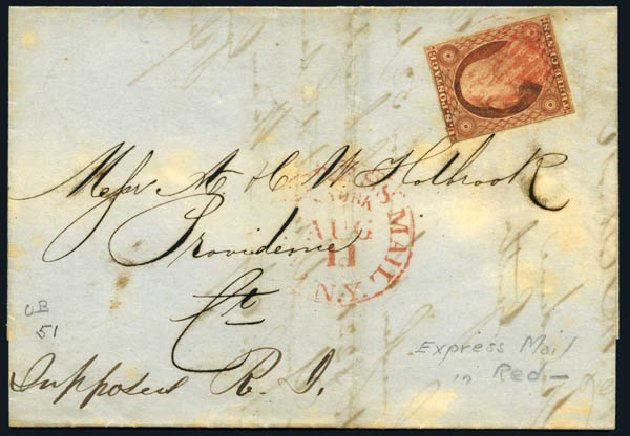 U.S. POSTAGE
THREE CENTS
Messr A & C W Holbrook
Providence
Ct
Supposed R. I.
YORK
MAIL
AUG
11
N.Y.
UB
51
Express Mail
in Red —